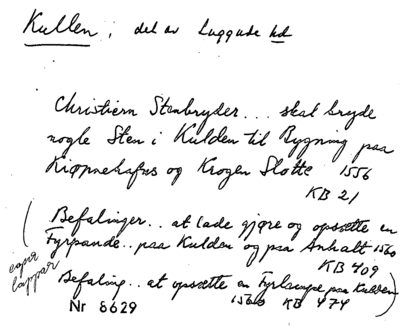 Kullen, del av Luggude hd
Christiern Stenbryder... skal bryde
nogle Sten i Kulden til Bygning paa
Kiøpnehafns og Krogen Slotte 1556
KB 21
(Befalinger.. at lade gjøre og opsætte en
Fyrpande.. paa Kulden og paa Anhalt 1560
KB 409
lappar
Befaling.. at opsætte en Fyrlampe paa Kulden)
1560 KB 474
Nr 8629